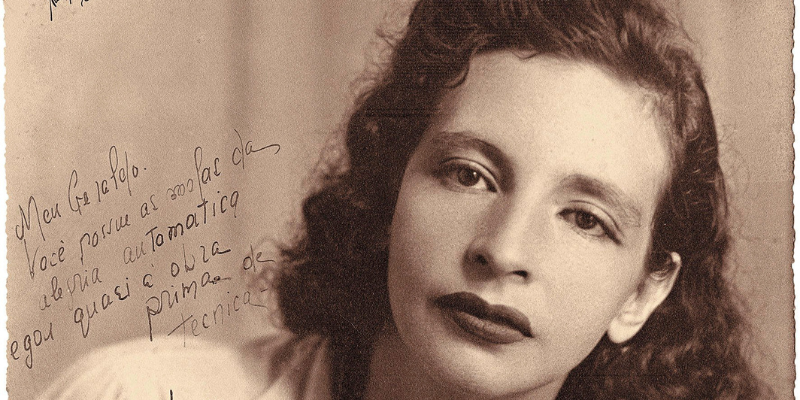 Meu Geraldo.
Você possue as molas da
alegria automatica
quasi a obra
prima de
tecnica